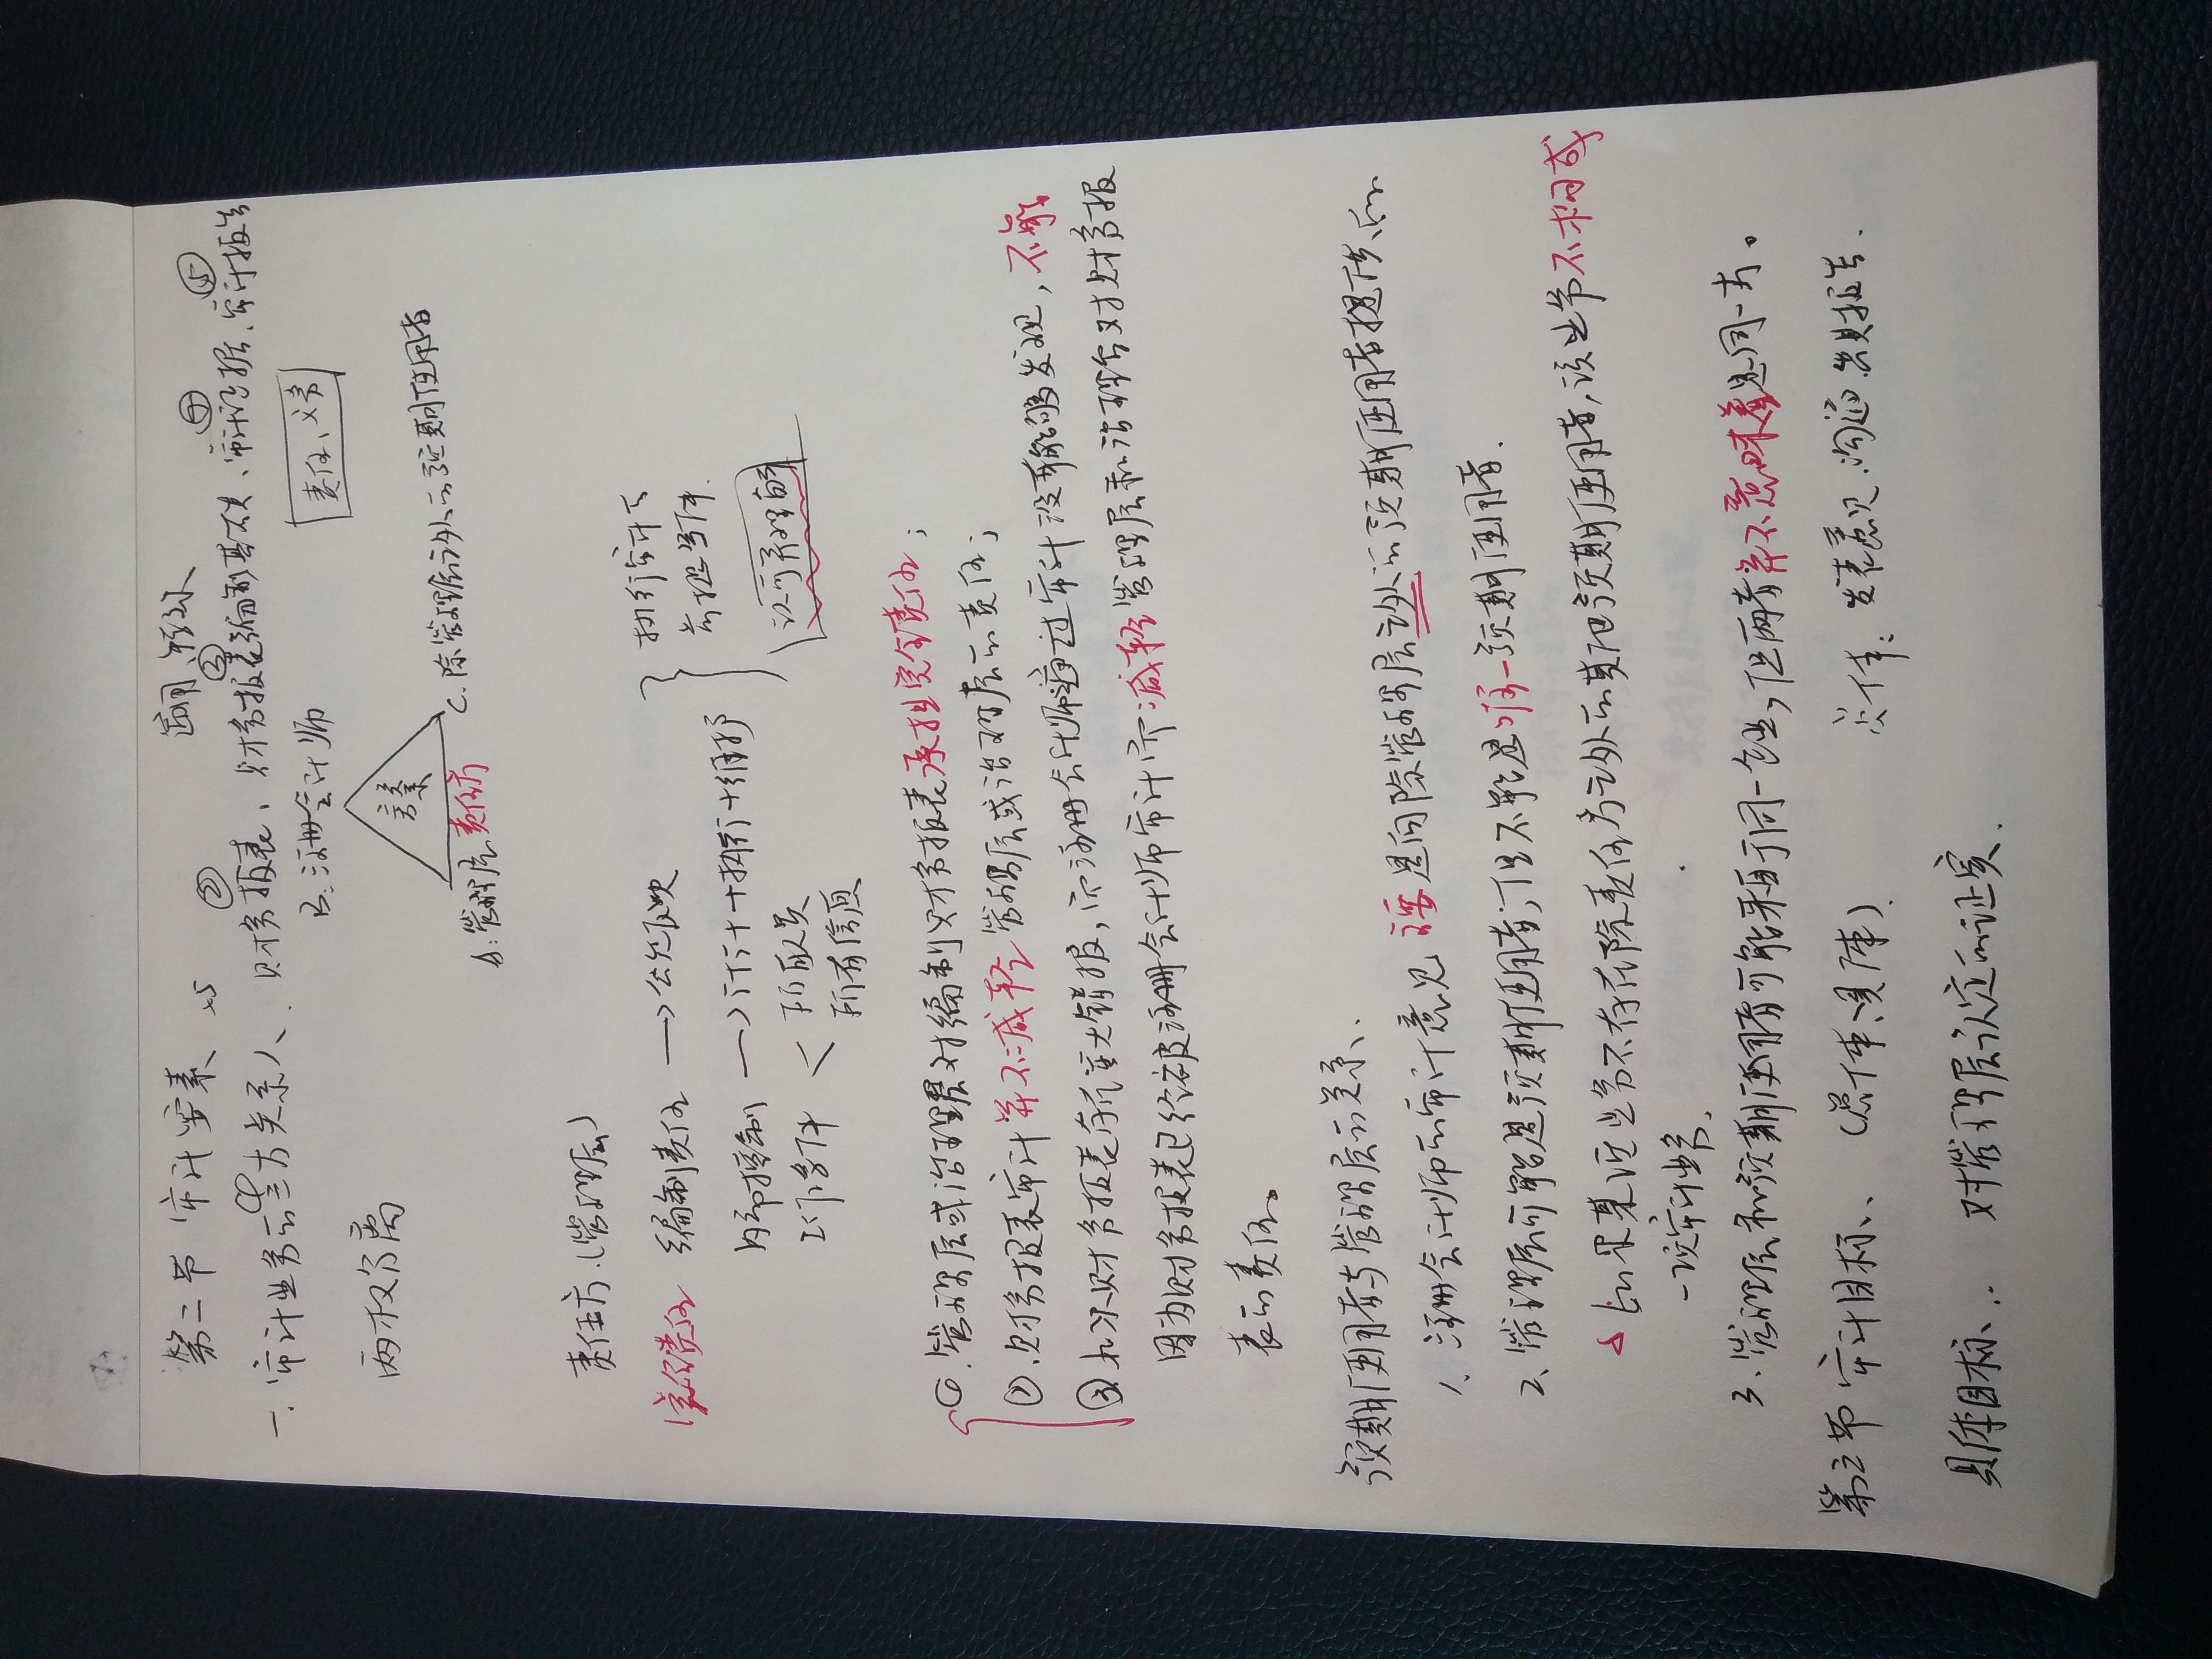 第二节 审计要素 x5
一.审计业务的三方关系人、财务报表、财务报表编制基础、审计证据、审计报告
① ② ③ ④ ⑤
责任、义务
B.注册会计师
要素
两权分离
A:管理层 责任方
C.除管理层以外的预期使用者
责任方(管理层)
编制责任 → 公允反映
内部控制 → 设计+执行+维护
工作条件 < 所有人员
所有信息
执行审计工作
前提条件
认可并理解
① 管理层或治理层对编制财务报表承担完全责任;
② 财务报表审计并不减轻管理层或治理层的责任;
③ 如果财务报表存在重大错报,而注册会计师通过审计没有能够发现,不能
因为财务报表已经被注册会计师审计而减轻管理层和治理层对财务报
表的责任。
预期使用者与管理层的关系、
1. 注册会计师的审计意见主要是向除管理层以外的预期使用者提供的
2、管理层可能是预期使用者,但不能是唯一预期使用者.
△ 如果某项业务不存在除责任方以外的其他预期使用者,该业务不构成
一项审计业务.
3、管理层和预期使用者可能来自于同一企业,但两者并不意味着是同一方。
第三节 审计目标、 (总体、具体) 总体:发表意见、沟通 出报告.
具体目标、: 对管理层认定的证实.